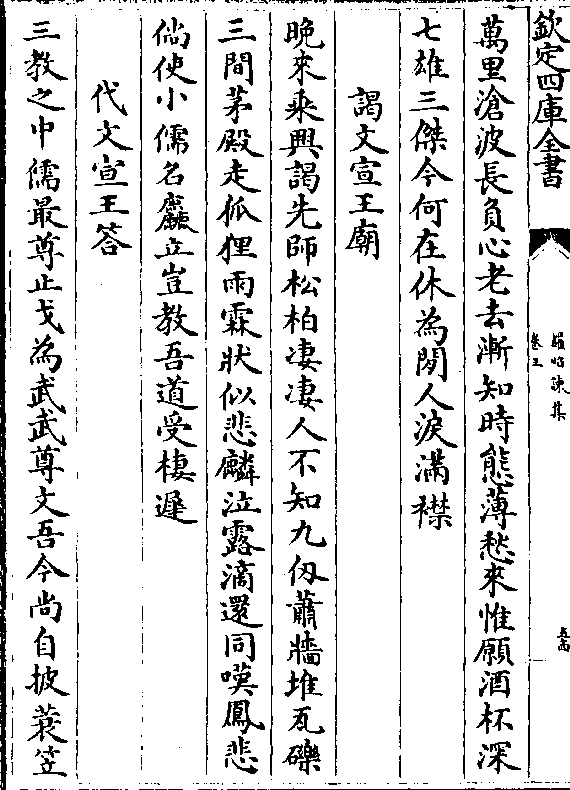 欽定四庫全書
羅昭諫集
卷三
萬里滄波長負心老去漸知時態薄愁來惟願酒杯深
七雄三傑今何在休為閒人淚滿襟
謁文宣王廟
晩來乘興謁先師松柏凄凄人不知九仭蕭牆堆瓦礫
三間茅殿走狐狸雨霖狀似悲麟泣露滴還同嘆鳳悲
倘使小儒名麤立豈教吾道受棲遲
代文宣王答
三教之中儒最尊止戈為武武尊文吾今尚自披蓑笠